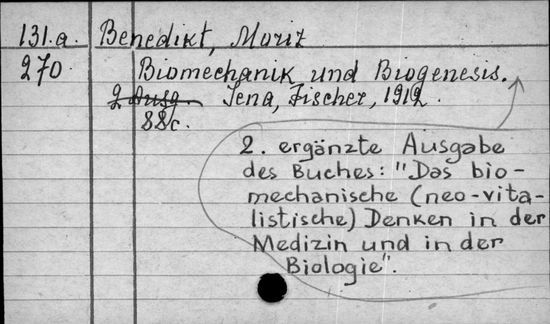 131.a. Benedikt, Moriz
270. Biomechanik und Biogenesis.
2 Ausg. Jena, Fischer, 1912.
88c.
2. ergänzte Ausgabe
des Buches: "Das bio-
mechanische (neo-vita-
listische) Denken in der
Medizin und in der
Biologie".